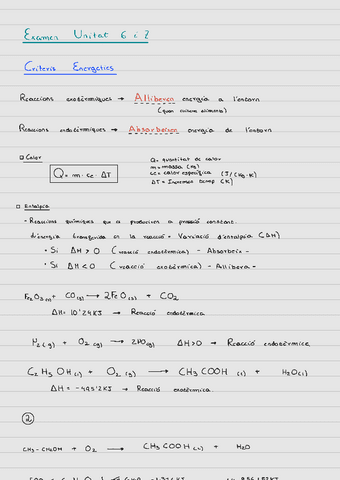 Examen Unitat 6 i 7
Criteris Energetics
Reaccions exotèrmiques → Alliberen energia a l'entorn
(quan cuinem aliments)
Reaccions endotèrmiques → Absorbeixen energia de l'entorn
Calor
Q = m · ce · ΔT
Q = quantitat de calor
m = massa (kg)
ce = calor específica (J/(Kg·K))
ΔT = Increment temp (K)
Entalpia
- Reaccions químiques que a produeixes a pressió constant.
d'energia transferida en la reacció = Variació d'entalpia (ΔH)
• Si ΔH > 0 (reacció endotèrmica) - Absorbeix -
• Si ΔH < 0 (reacció exotèrmica) - Allibera -
Fe2O3(s) + CO(g) → 2FeO(s) + CO2
ΔH = 10'24KJ → Reacció endotèrmica
N2(g) + O2(g) → 2NO(g) ΔH>0 → Reacció endotèrmica
C2H5OH(l) + O2(g) → CH3COOH(l) + H2O(l)
ΔH = -495'2KJ → Reacció exotèrmica.
2
CH3-CH2OH + O2 → CH3COOH(l) + H2O